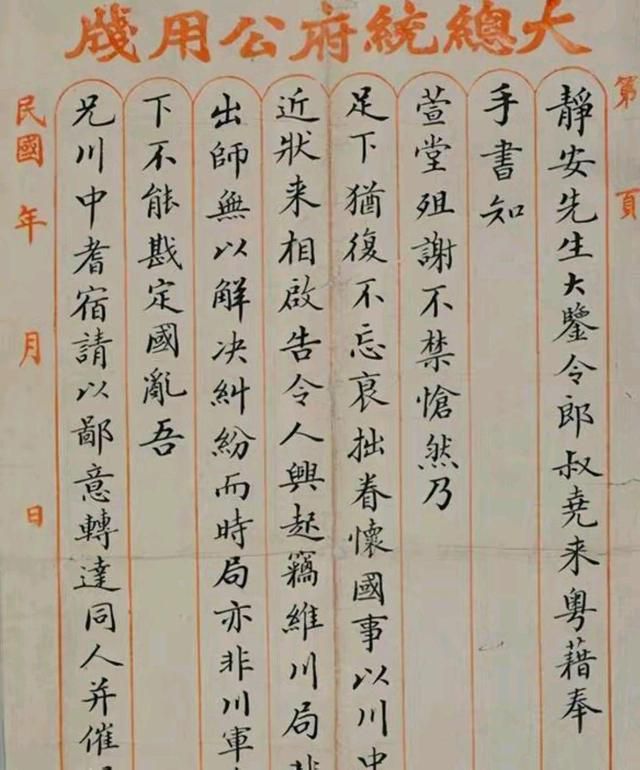 大總統府公用牋
第 頁
靜安先生大鑒令郎叔堯来粤藉奉
手書知
萱堂殂謝不禁愴然乃
足下猶復不忘哀拙眷懷國事以川中
近狀来相啟告令人興起竊維川局非
出師無以解决糾紛而時局亦非川軍
下不能戡定國亂吾
兄川中耆宿請以鄙意轉達同人并催
民國 年 月 日